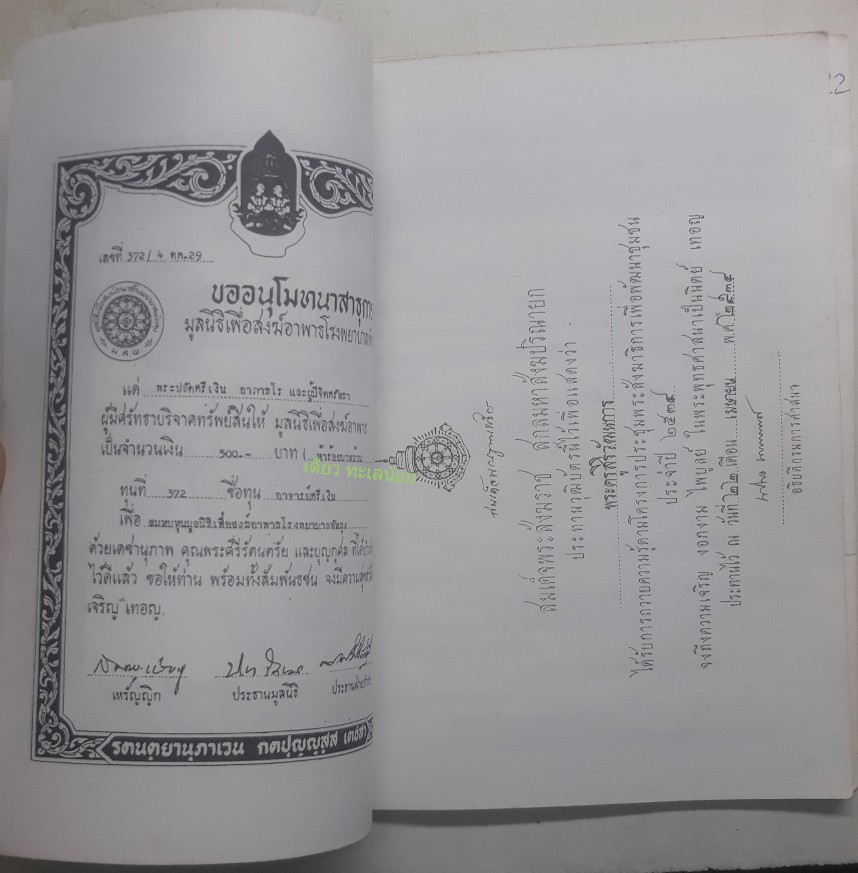 เลขที่ 372/4 ตค.29
ขออนุโมทนาสาธุการ
มูลนิธิเพื่อสงฆ์อาพาธโรงพยาบาล
ม ส พ
แด่ พระปลัดศรีเงิน อาภาธโร และผู้มีจิตศรัทธา
ผู้มีศรัทธาบริจาคทรัพย์สินให้ มูลนิธิเพื่อสงฆ์อาพาธ
เป็นจำนวนเงิน 500.- บาท ( ห้าร้อยบาทถ้วน
ทุนที่ 372 ชื่อทุน อาจารย์ศรีเงิน
เพื่อ สมทบทุนมูลนิธิเพื่อสงฆ์อาพาธโรงพยาบาลพัทลุง
ด้วยเดชานุภาพ คุณพระศรีรัตนตรัย และบุญกุศล ที่ได้
ไว้ดีแล้ว ขอให้ท่าน พร้อมทั้งสัมพันธชน จงมีความสุข
เจริญ เทอญ.
เหรัญญิก
ประธานมูลนิธิ
รตนตฺตยานุภาเวน กตปุญฺญสฺส เตชสา
เดียว ทะเลน้อย
12
สมเด็จพระสังฆราช สกลมหาสังฆปริณายก
ประทานวุฒิบัตรนี้ไว้เพื่อแสดงว่า
พระครูสิริรัตนพการ
ได้รับการถวายความรู้ตามโครงการประชุมพระสังฆาธิการเพื่อพัฒนาชุมชน
ประจำปี ๒๕๓๔
จงถึงความเจริญ งอกงาม ไพบูลย์ ในพระพุทธศาสนาเป็นนิตย์ เทอญ
ประทานไว้ ณ วันที่ ๒๒ เดือน เมษายน พ.ศ. ๒๕๓๔
อธิบดีกรมการศาสนา